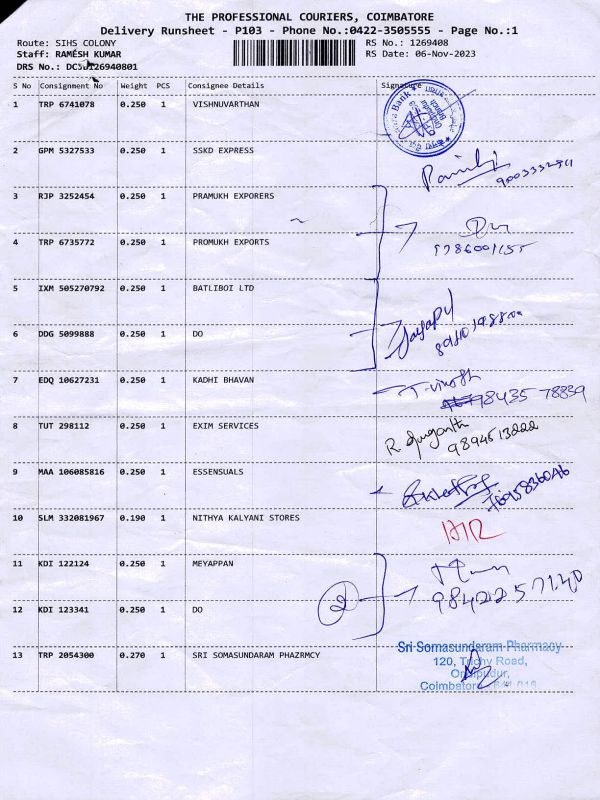 THE PROFESSIONAL COURIERS, COIMBATORE
Delivery Runsheet - P103 - Phone No.:0422-3505555 - Page No.:1
Route: SIHS COLONY
RS No.: 1269408
Staff: RAMESH KUMAR
RS Date: 06-Nov-2023
DRS No.:
S No Consignment No Weight PCS Consignee Details Signature
1 TRP 6741078 0.250 1 VISHNUVARTHAN
Bank
2 GPM 5327533 0.250 1 SSKD EXPRESS
3 RJP 3252454 0.250 1 PRAMUKH EXPORERS
4 TRP 6735772 0.250 1 PROMUKH EXPORTS
5 IXM 505270792 0.250 1 BATLIBOI LTD
6 DDG 5099888 0.250 1 DO
7 EDQ 10627231 0.250 1 KADHI BHAVAN
T. vinoth
98435 78839
8 TUT 298112 0.250 1 EXIM SERVICES
9894513222
9 MAA 106085816 0.250 1 ESSENSUALS
10 SLM 332081967 0.190 1 NITHYA KALYANI STORES
11 KDI 122124 0.250 1 MEYAPPAN
2
9842257140
12 KDI 123341 0.250 1 DO
13 TRP 2054300 0.270 1 SRI SOMASUNDARAM PHAZRMCY
Sri Somasundaram Pharmacy
120, Trichy Road,